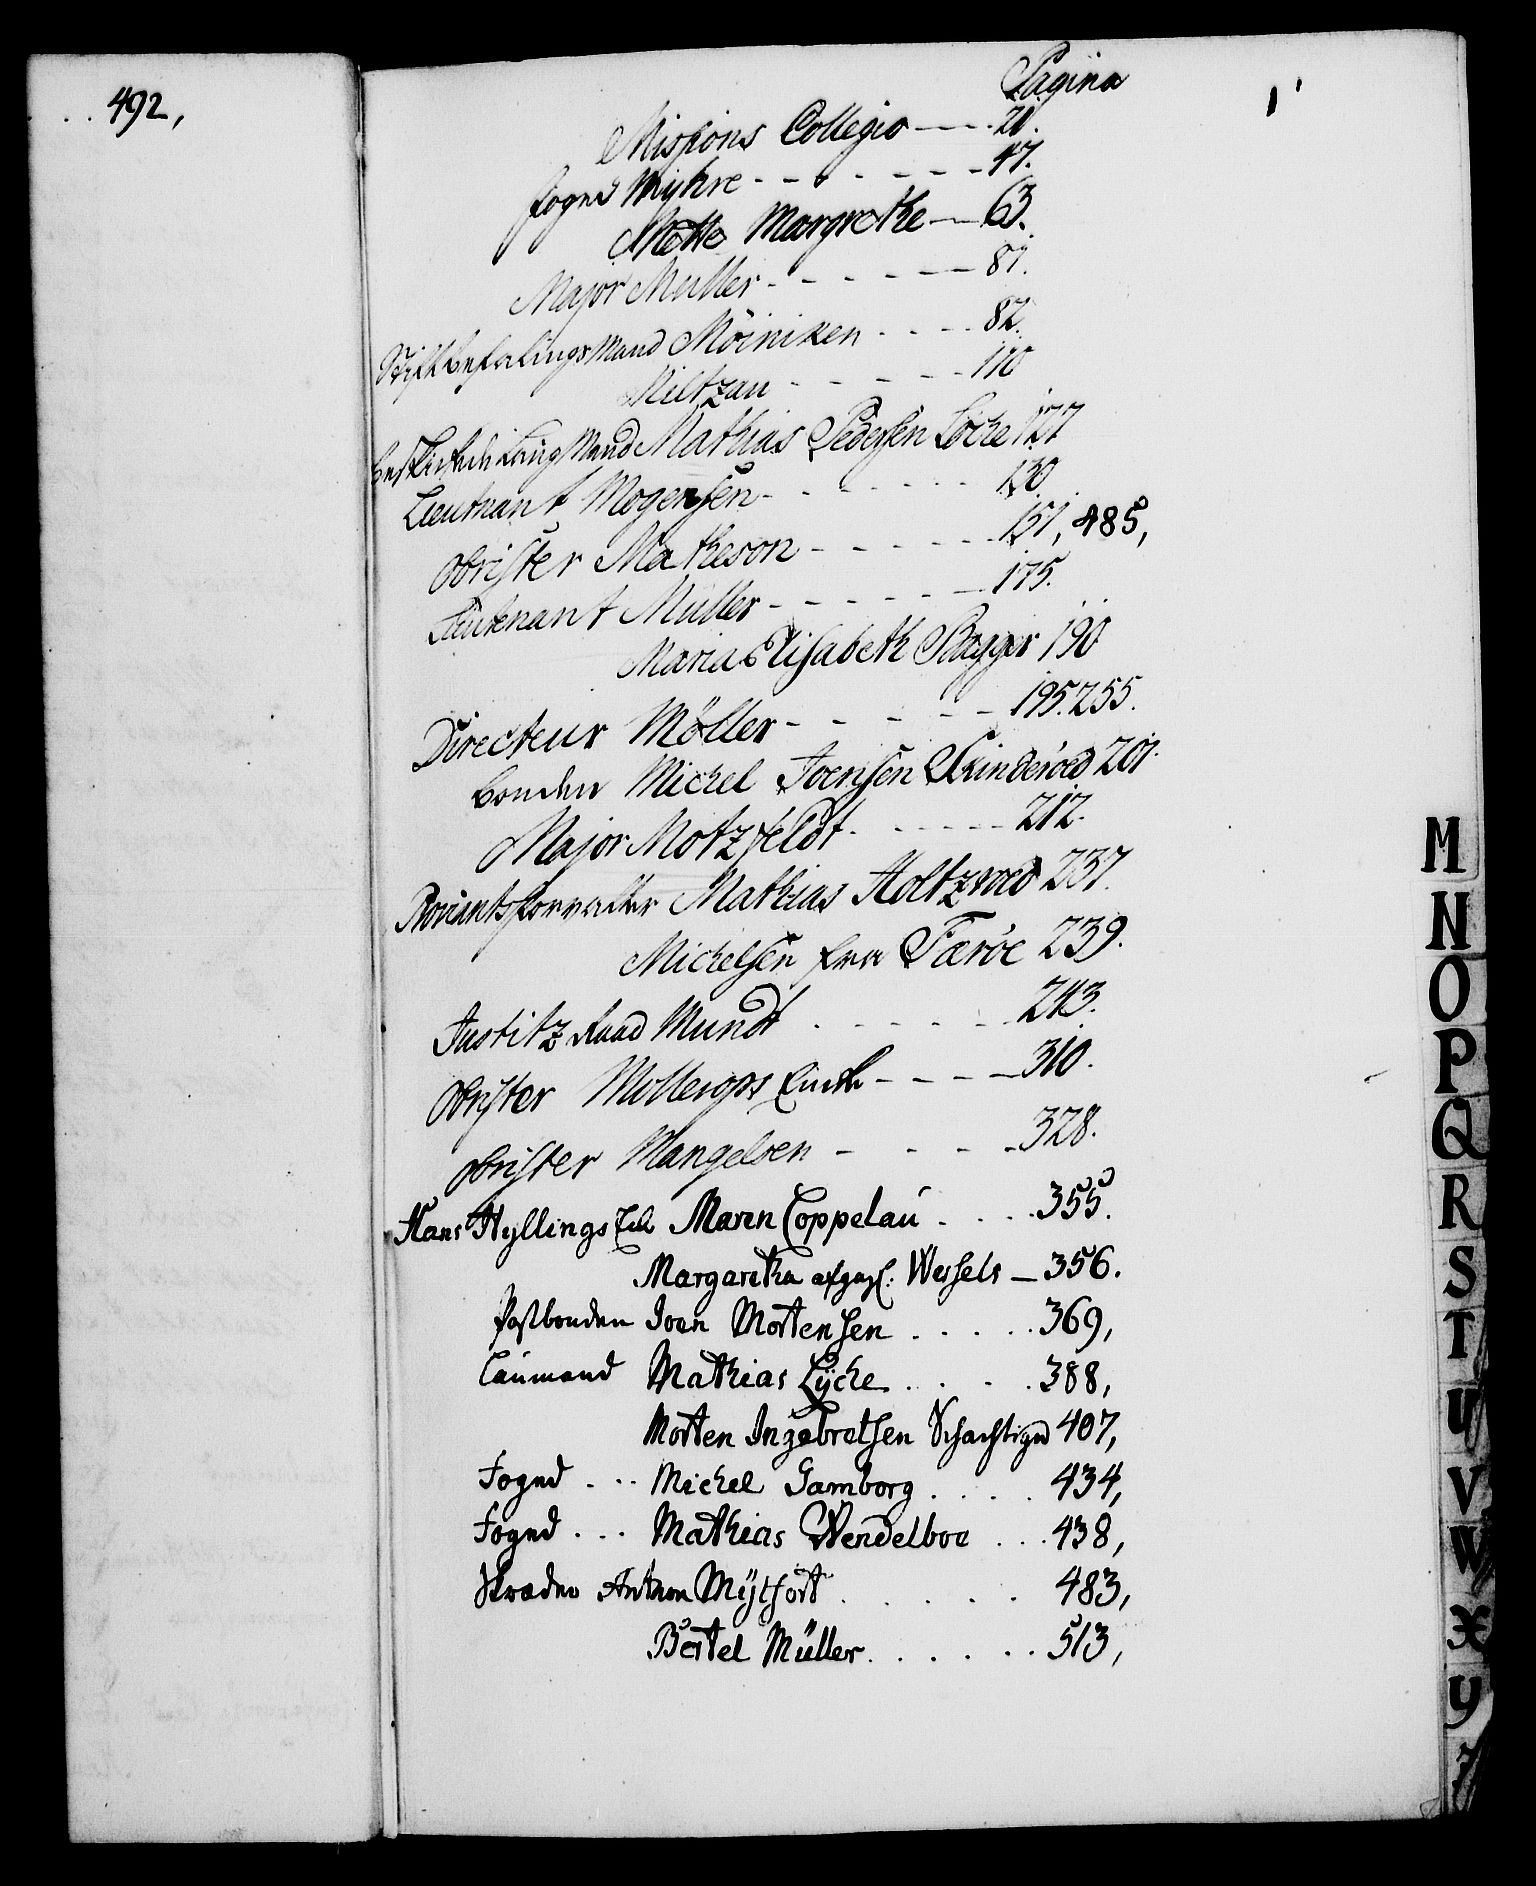 492,
Pagina
Missions Collegio 21.
foged Myhre 47.
Mette Margrethe 63.
Major Muller 81.
Stiftbefalings Mand Möiniken 82.
Miltzau 110
Laug Mand Mathias Pedersen Löche 127
Lieutnant Mogensen 130
Obrister Matheson 151, 485,
Lieutenant Müller 175.
Maria Elisabeth Bagger 190
Directeur Møller 195. 255.
bonden Michel Joensen Skinderöed 201.
Major Motzfeldt 212.
Proviantsforvalter Mathias Holtzvoed 237.
Michelsen fra Færöe 239.
Justitz Raad Mundt 243.
Obrister Mollerops Encke 310.
Obrister Mangelsen 328.
Hans Hyllings Maren Coppelau 355.
Margaretha Wessels 356.
Postbonden Joen Mortensen 369,
Laumand Mathias Lÿche 388,
Morten Ingebretsen 407,
Foged Michel Gamborg 434,
Foged Mathias Wendelboe 438,
Skræder Anthon Mÿlfort 483,
Bertel Müller 513,
M
N
O
P
Q
R
S
T
U
V
W
X
Y